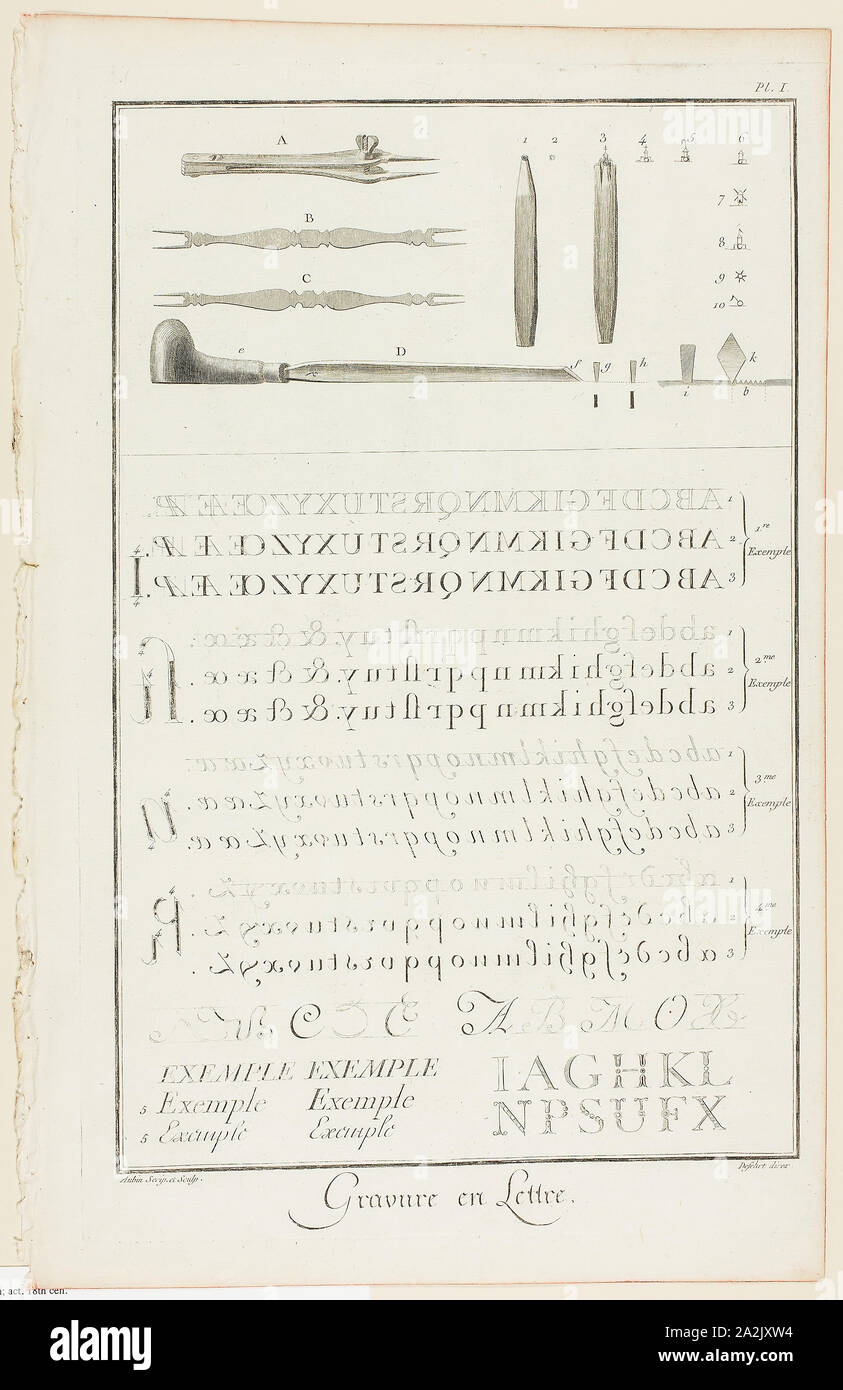 Pl. I.
A
1 2 3 4 5 6
7
B
8
C
9
10
e D f g h i k b
1 ABCDEFGIKMNQRSTUXYZŒÆÆ.
2 ABCDEFGIKMNQRSTUXYZŒÆÆ.
3 ABCDEFGIKMNQRSTUXYZŒÆÆ.
1.re Exemple
1 abdefghikmnpqrſtuy.&ctæœ.
2 abdefghikmnpqrſtuy.&ctæœ.
3 abdefghikmnpqrſtuy.&ctæœ.
2.me Exemple
1 abcdefghiklmnopqrstuvxyzæœ.
2 abcdefghiklmnopqrstuvxyzæœ.
3 abcdefghiklmnopqrstuvxyzæœ.
3.me Exemple
1 abcdefghilmnopqrstuvxyz.
2 abcdefghilmnopqrstuvxyz.
3 abcdefghilmnopqrstuvxyz.
4.me Exemple
A B M O X
EXEMPLE EXEMPLE
5 Exemple Exemple
5 Exemple Exemple
IAGHKL
NPSUFX
Aubin Scrip. et Sculp.
Defehrt direx
Gravure en Lettre.
; act. 18th cen.
alamy
Image ID: 2A2JXW4
www.alamy.com